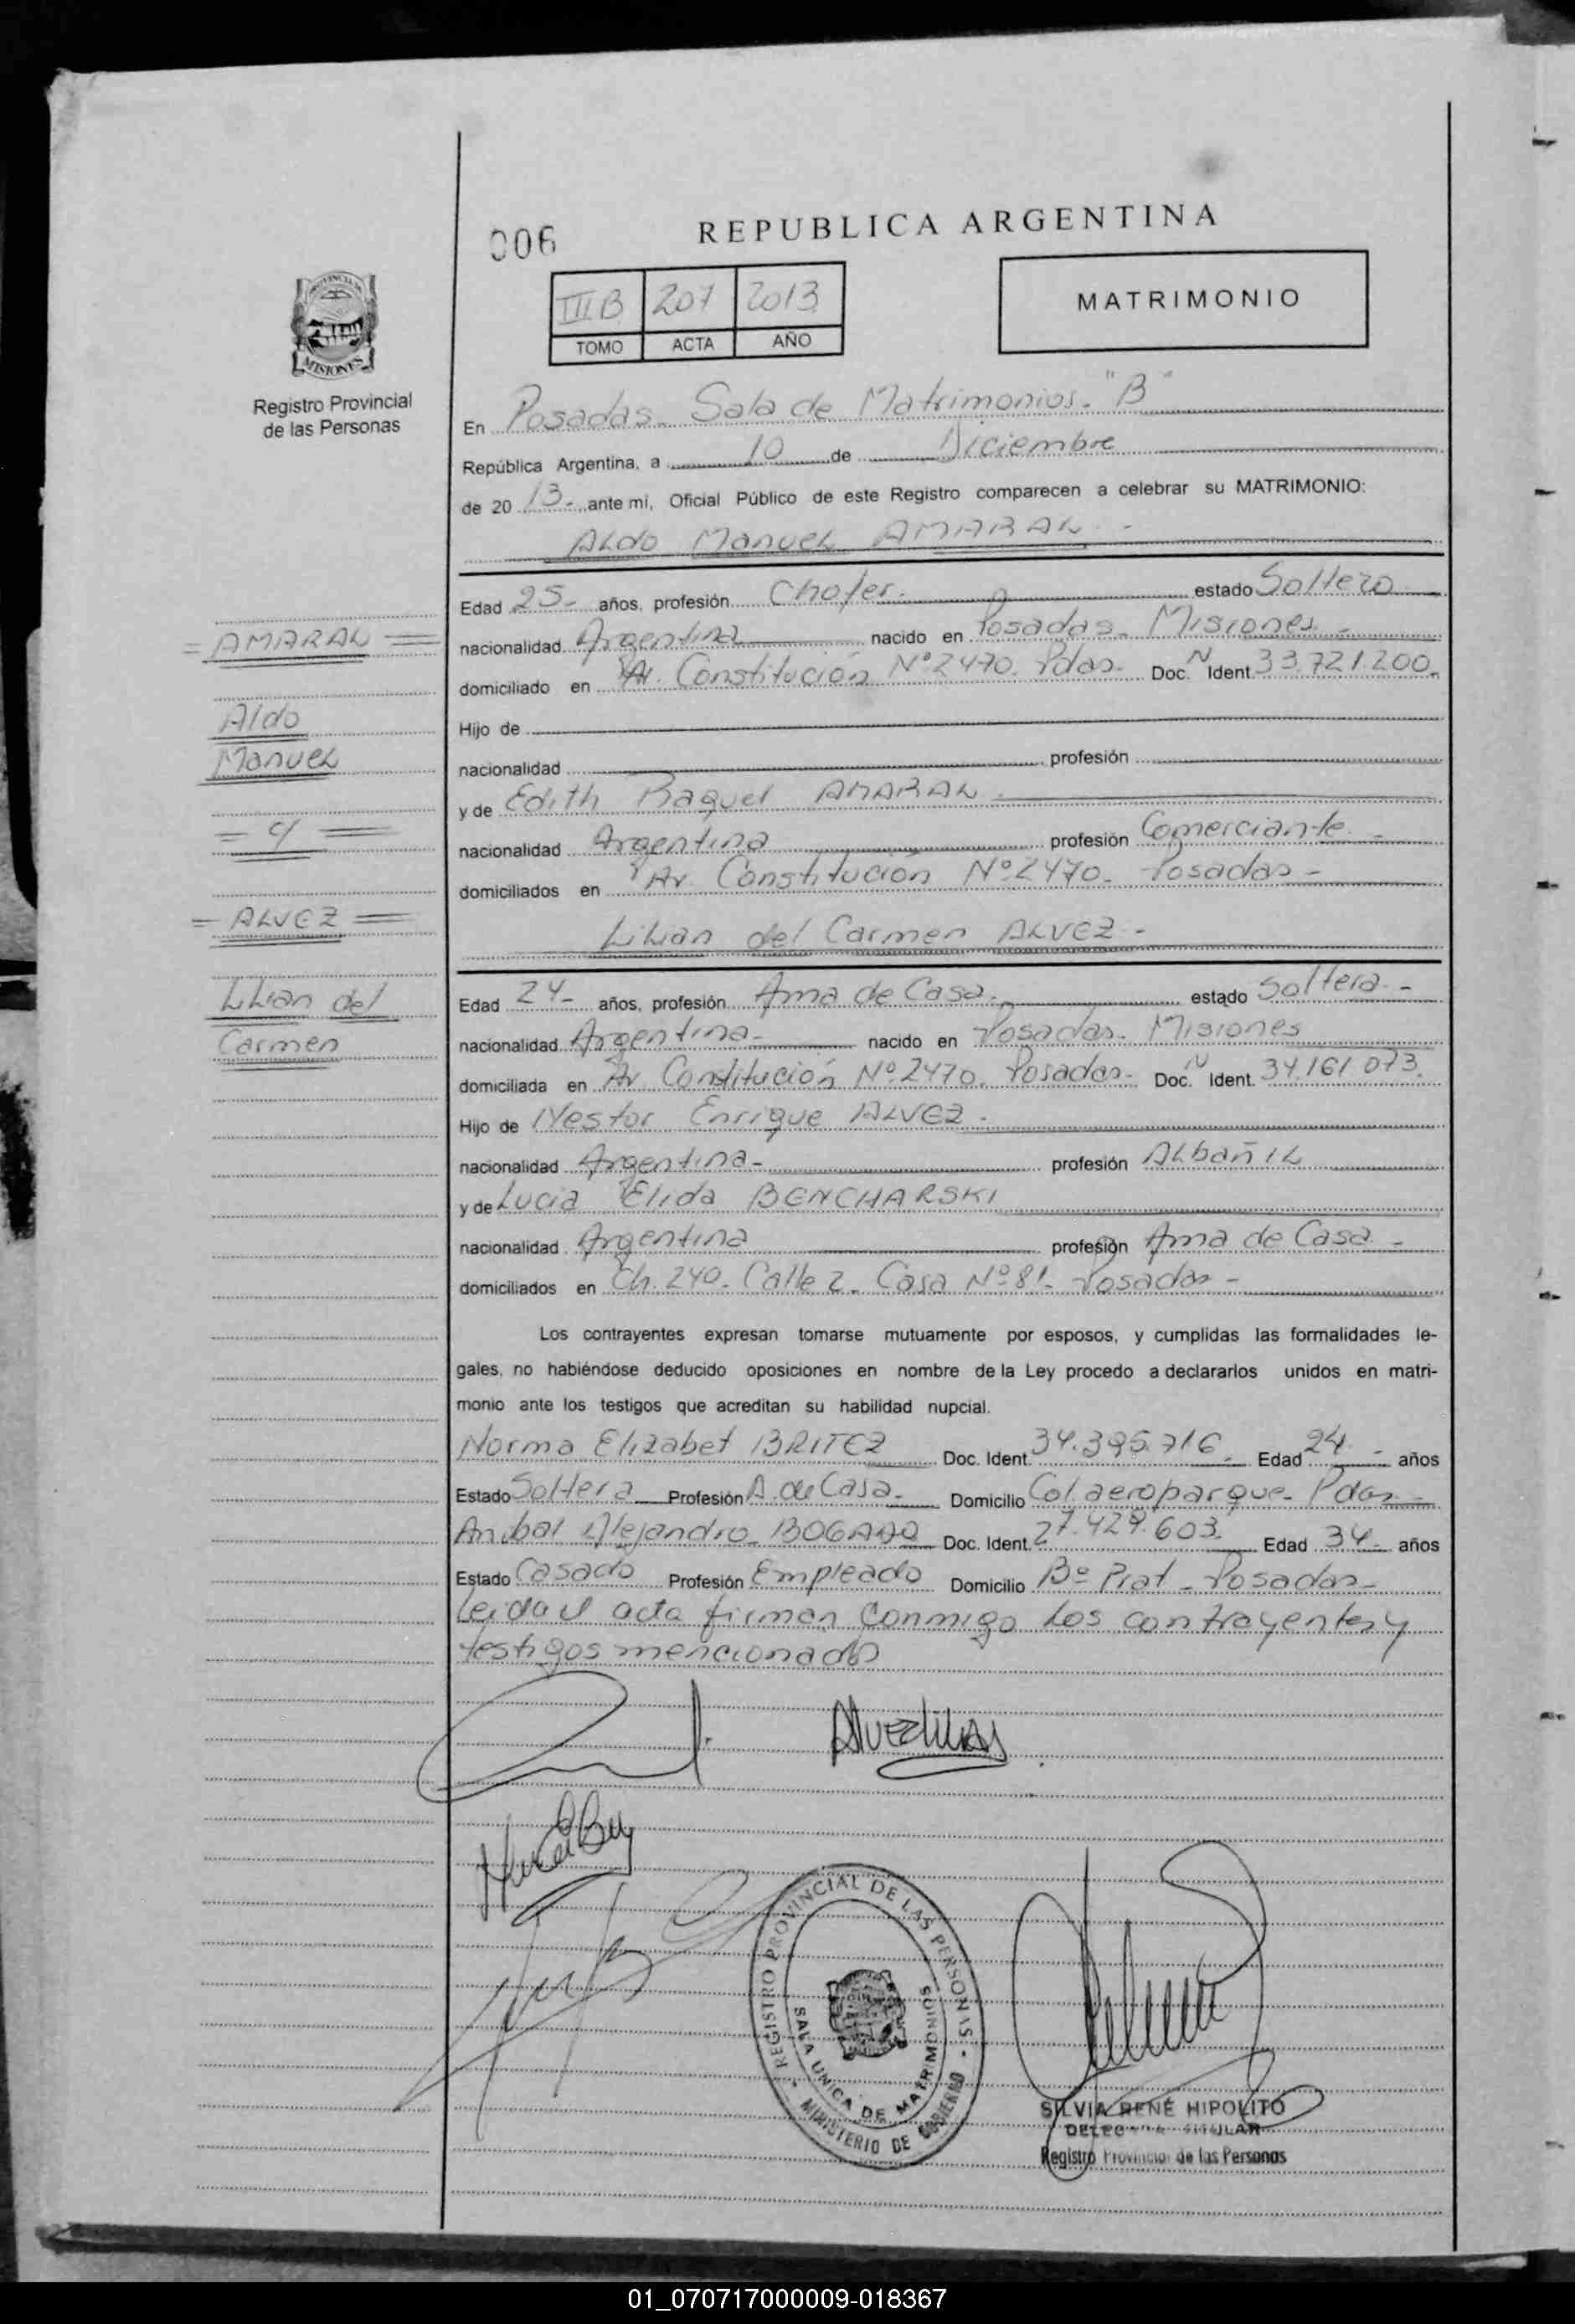 006
REPUBLICA ARGENTINA
III B 207 2013
TOMO ACTA AÑO
MATRIMONIO
PROVINCIA
MISIONES
Registro Provincial
de las Personas
En Posadas. Sala de Matrimonios. "B"
República Argentina, a 10 de Diciembre
de 20 13- ante mi, Oficial Público de este Registro comparecen a celebrar su MATRIMONIO:
Aldo Manuel AMARAL -
Edad 25- años, profesión Chofer. estado Soltero
nacionalidad Argentina nacido en Posadas. Misiones -
domiciliado en Av. Constitución Nº 2470. Pdas. Doc. N Ident. 33.721.200.
Hijo de
nacionalidad profesión
y de Edith Raquel AMARAL
nacionalidad Argentina profesión Comerciante -
domiciliados en Av. Constitución Nº 2470. Posadas -
Lilian del Carmen ALVEZ -
Edad 24- años, profesión Ama de Casa. estado Soltera -
nacionalidad Argentina- nacido en Posadas. Misiones
domiciliada en Av Constitución Nº 2470. Posadas- Doc. N Ident. 34.161.073.
Hijo de Nestor Enrique ALVEZ -
nacionalidad Argentina- profesión Albañil
y de Lucia Elida BENCHARSKI
nacionalidad Argentina profesión Ama de Casa -
domiciliados en Ch. 240. Calle 2. Casa Nº 81. Posadas -
= AMARAL =
Aldo
Manuel
= c/ =
= ALVEZ =
Lilian del
Carmen
Los contrayentes expresan tomarse mutuamente por esposos, y cumplidas las formalidades le-
gales, no habiéndose deducido oposiciones en nombre de la Ley procedo a declararlos unidos en matri-
monio ante los testigos que acreditan su habilidad nupcial.
Norma Elizabet BRITEZ Doc. Ident. 34.395.716 - Edad 24 - años
Estado Soltera Profesión A. de Casa- Domicilio Col. aeroparque- Pdas-
Anibal Alejandro BOGADO Doc. Ident. 27.429.603. Edad 34- años
Estado Casado Profesión Empleado Domicilio Bº Prat - Posadas-
Leida el acta firman conmigo los contrayentes y
testigos mencionados
Alvez Lilian
REGISTRO PROVINCIAL DE LAS PERSONAS - MINISTERIO DE GOBIERNO -
SALA UNICA DE MATRIMONIOS
SILVIA RENÉ HIPOLITO
DELEGADA TITULAR
Registro Provincial de las Personas
01_070717000009-018367